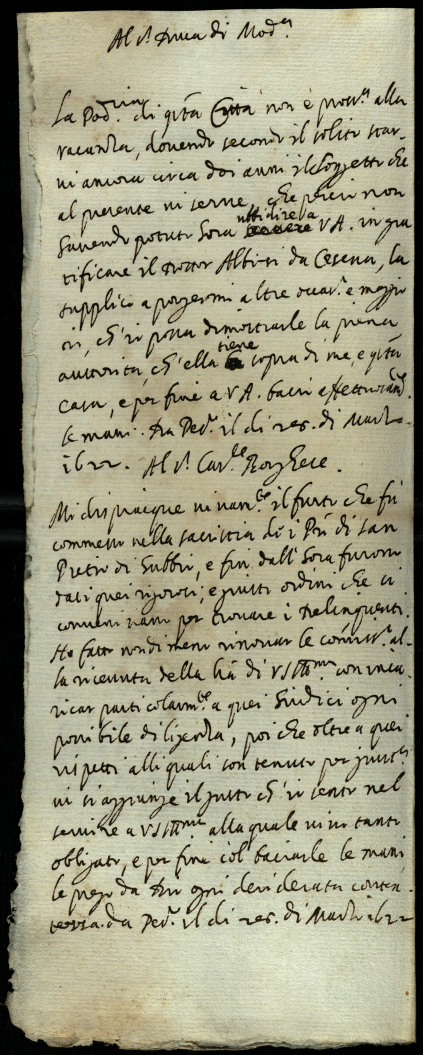 Al s.r Duca di Mod.a
La Pod.ria di q.ta Città non è pross.a alla
vacanza, dovendo secondo il solito star-
vi ancora circa doi anni il soggetto che
al presente vi serve, che perciò non
havendo potuto hora ubbidire la V A. in gra
tificare il Dottor Albitij da Cesena, la
supplico a porgermi altre occas.i e maggio
ri, ch'io possa dimostrarle la piena
autorità, ch'ella tiene sopra di me, e q.ta
casa, e per fine a V A. bacio affettuosam.te
le mani. Da Pes.o il dì 28. di Marzo
1622. Al s.r Car.le Borghese.
Mi dispiacque vivam.te il furto che fù
commesso nella sacristia di i P.ri di san
Pietro di Gubbio, e fin dall'hora furono
dati quei rigorosi, e giusti ordini che si
convenivano per trovare i Delinquenti.
Ho fatto nondimeno rinovar le com.ni al-
la ricevuta della l.ra di V S Ill.ma con inca-
ricar particolarm.te a quei Giudici ogni
possibile diligenza, poi che oltre a quei
rispetti alli quali son tenuto per giust.a
vi si aggiunge il gusto ch'io sento nel
servire a V S Ill.ma alla quale vivo tanto
obligato, e per fine col baciarle le mani
le prego da Dio ogni desiderata conten-
tezza. da Pes.o il dì 28. di Marzo 1622